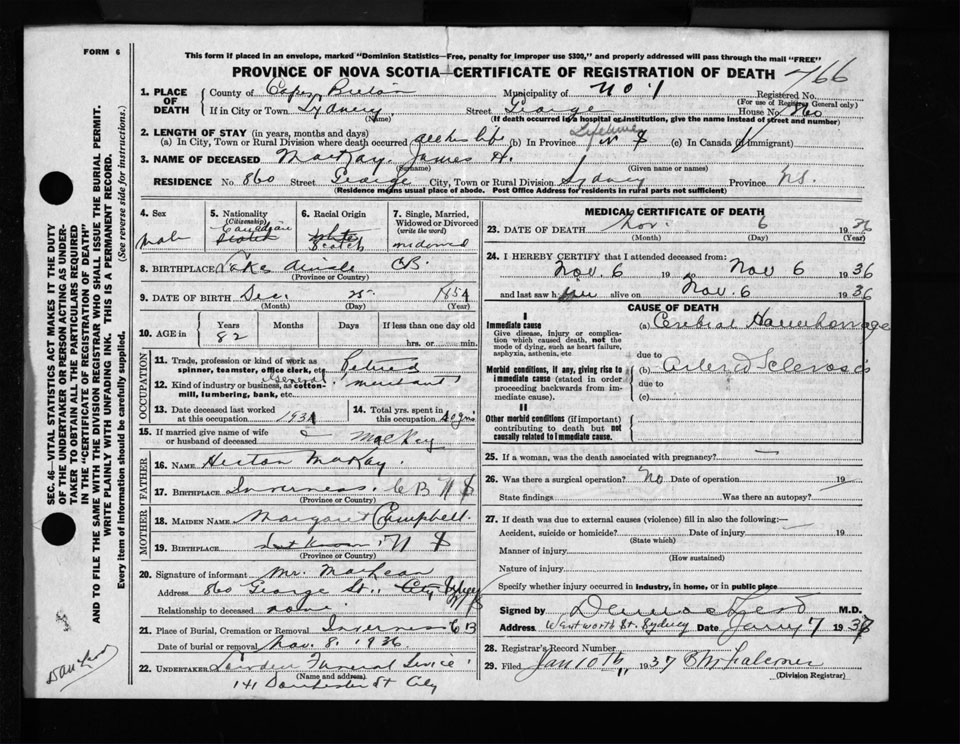 FORM 6
This form if placed in an envelope, marked "Dominion Statistics—Free, penalty for improper use $300," and properly addressed will pass through the mail "FREE"
PROVINCE OF NOVA SCOTIA—CERTIFICATE OF REGISTRATION OF DEATH 766
1. PLACE OF DEATH County of Cape Breton Municipality of No. 1 Registered No.
(For use of Registrar General only)
If in City or Town Sydney Street George House No. 860
(Name) (If death occurred in a hospital or institution, give the name instead of street and number)
2. LENGTH OF STAY (in years, months and days) Lifetime
(a) In City, Town or Rural Division where death occurred all his life (b) In Province N S (c) In Canada (if immigrant)
3. NAME OF DECEASED MacKay, James H.
(Surname) (Given name or names)
RESIDENCE No. 860 Street George City, Town or Rural Division Sydney Province N.S.
(Residence means usual place of abode. Post Office Address for residents in rural parts not sufficient)
4. Sex Male
5. Nationality (Citizenship) Canadian Scotch
6. Racial Origin White Scotch
7. Single, Married, Widowed or Divorced (write the word) widowed
8. BIRTHPLACE Lake Ainslie CB.
(Province or Country)
9. DATE OF BIRTH Dec. 25 1854
(Month) (Day) (Year)
10. AGE in Years Months Days If less than one day old
82 hrs. or min.
OCCUPATION
11. Trade, profession or kind of work as spinner, teamster, office clerk, etc. Retired
12. Kind of industry or business, as cotton-mill, lumbering, bank, etc. General merchant
13. Date deceased last worked at this occupation 1931
14. Total yrs. spent in this occupation 40 yrs
15. If married give name of wife or husband of deceased MacKay
FATHER
16. NAME Hector MacKay
17. BIRTHPLACE Inverness C B N S
(Province or Country)
MOTHER
18. MAIDEN NAME Margaret Campbell
19. BIRTHPLACE Not Known N S
(Province or Country)
20. Signature of informant Mr. MacLean
Address 860 George St., City Sydney
Relationship to deceased none
21. Place of Burial, Cremation or Removal Inverness C B
Date of burial or removal Nov. 8, 1936
22. UNDERTAKER Funeral Service
(Name and address)
141 Dorchester St City
MEDICAL CERTIFICATE OF DEATH
23. DATE OF DEATH Nov. 6 1936
(Month) (Day) (Year)
24. I HEREBY CERTIFY that I attended deceased from:
Nov. 6 19 to Nov 6 1936
and last saw him alive on Nov. 6 1936
CAUSE OF DEATH
I
Immediate cause
Give disease, injury or complication which caused death, not the mode of dying, such as heart failure, asphyxia, asthenia, etc
(a) Cerebral Haemhorrage
due to
Morbid conditions, if any, giving rise to immediate cause (stated in order proceeding backwards from immediate cause).
(b) Arterio Sclerosis
due to
(c)
II
Other morbid conditions (if important) contributing to death but not causally related to immediate cause.
25. If a woman, was the death associated with pregnancy? —
26. Was there a surgical operation? No Date of operation 19
State findings Was there an autopsy?
27. If death was due to external causes (violence) fill in also the following:—
Accident, suicide or homicide? Date of injury 19
(State which)
Manner of injury
(How sustained)
Nature of injury
Specify whether injury occurred in industry, in home, or in public place
Signed by M.D.
Address Wentworth St. Sydney Date Jany 7 1937
28. Registrar's Record Number
29. Filed Jan 10th 1937
(Division Registrar)
SEC. 46—VITAL STATISTICS ACT MAKES IT THE DUTY OF THE UNDERTAKER OR PERSON ACTING AS UNDERTAKER TO OBTAIN ALL THE PARTICULARS REQUIRED IN THE "CERTIFICATE OF REGISTRATION OF DEATH" AND TO FILE THE SAME WITH THE DIVISION REGISTRAR WHO SHALL ISSUE THE BURIAL PERMIT.
WRITE PLAINLY WITH UNFADING INK. THIS IS A PERMANENT RECORD.
Every item of information should be carefully supplied. (See reverse side for instructions.)